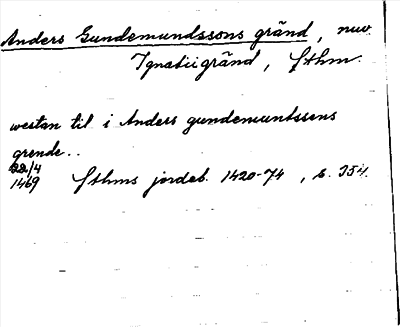 Anders Gundemundssons gränd, nuv.
Ignatiigränd, Sthm.
westan til i Anders gundemundssens
grende..
22/4
1469 Sthms jordeb. 1420-74, s. 354.